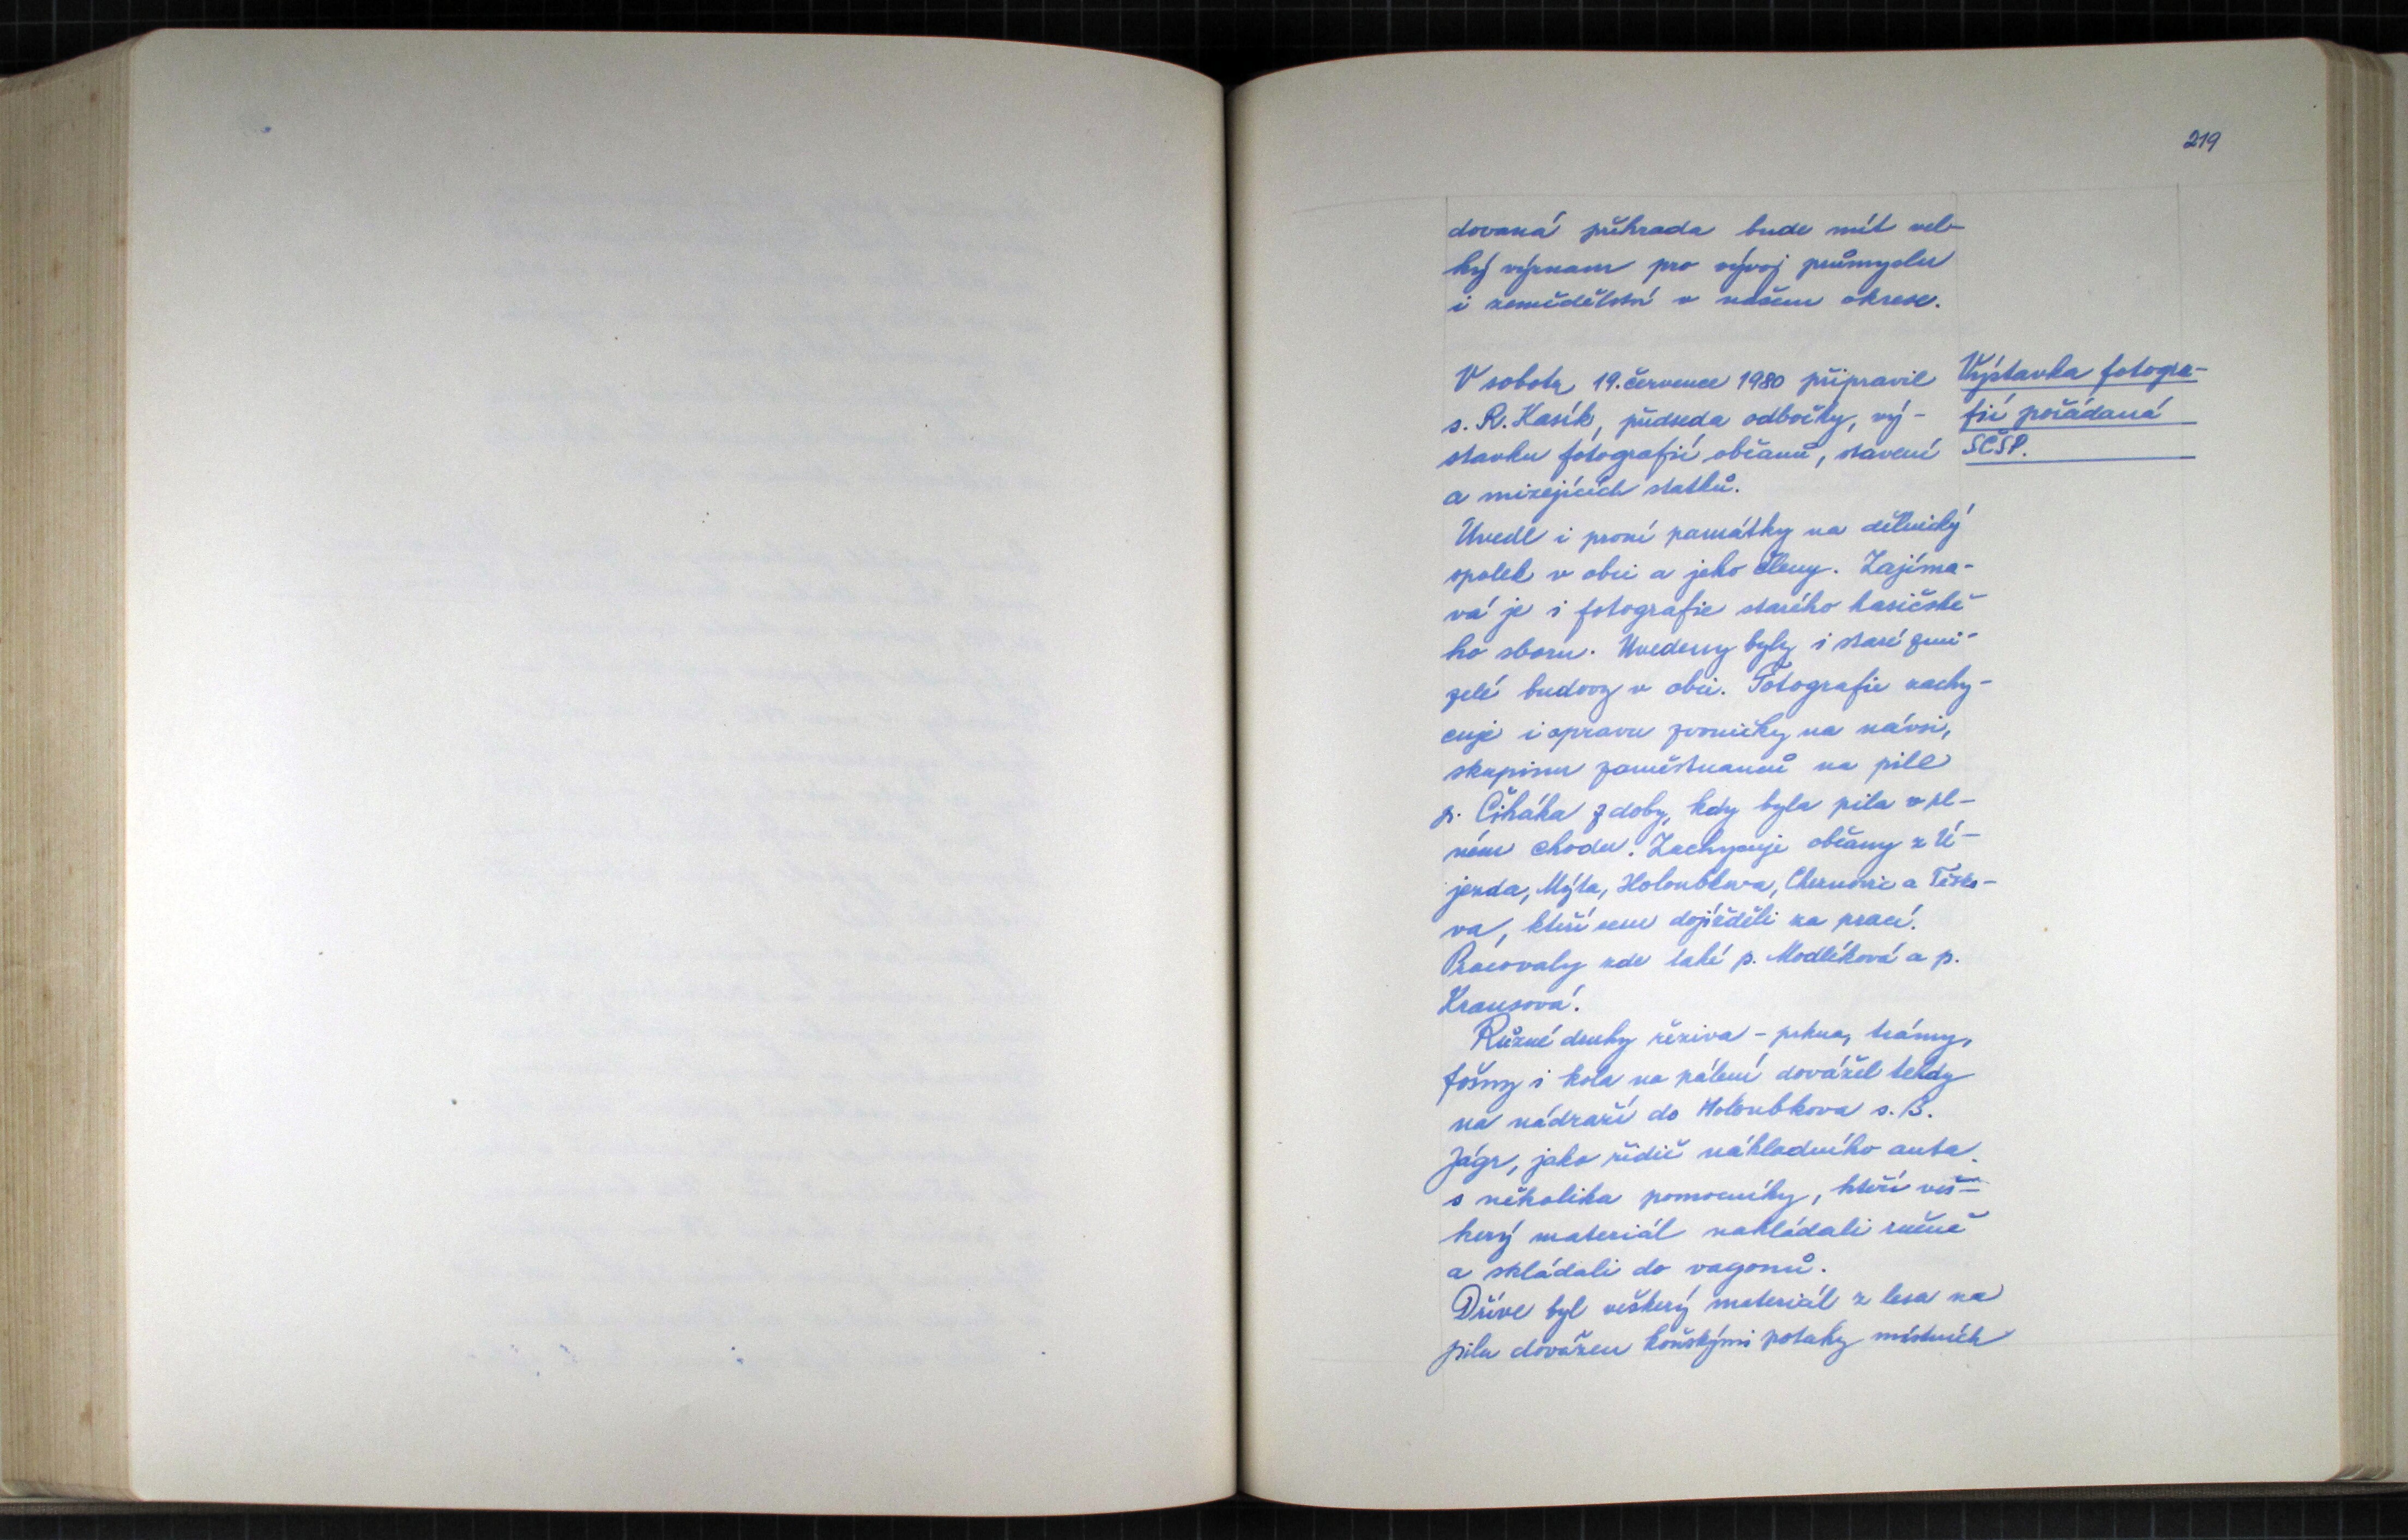 219
dovaná přehrada bude mít vel-
ký význam pro vývoj průmyslu
i zemědělství v našem okrese.
Výstavka fotogra-
fií pořádaná
SČSP.
V sobotu 19. července 1980 připravil
s. R. Kasík, předseda odbočky, vý-
stavku fotografií občanů, stavení
a mizejících statků.
Uvedl i první památky na dělnický
spolek v obci a jeho členy. Zajíma-
vá je i fotografie starého hasičské-
ho sboru. Uvedeny byly i staré zmi-
zelé budovy v obci. Fotografie zachy-
cuje i opravu zvoničky na návsi,
skupinu zaměstnanců na pile
p. Čiháka z doby, kdy byla pila v pl-
ném chodu. Zachycuje občany z Ú-
jezda, Mýta, Holoubkova, Cheznovic a Těško-
va, kteří sem dojížděli za prací.
Pracovaly zde také p. Modlíková a p.
Krausová.
Různé druhy řeziva - prkna, trámy,
fošny i kola na pálení dovážel tehdy
na nádraží do Holoubkova s. B.
Jágr, jako řidič nákladního auta
s několika pomocníky, kteří veš-
kerý materiál nakládali ručně
a skládali do vagonů.
Dříve byl veškerý materiál z lesa na
pilu dovážen koňskými potahy místních